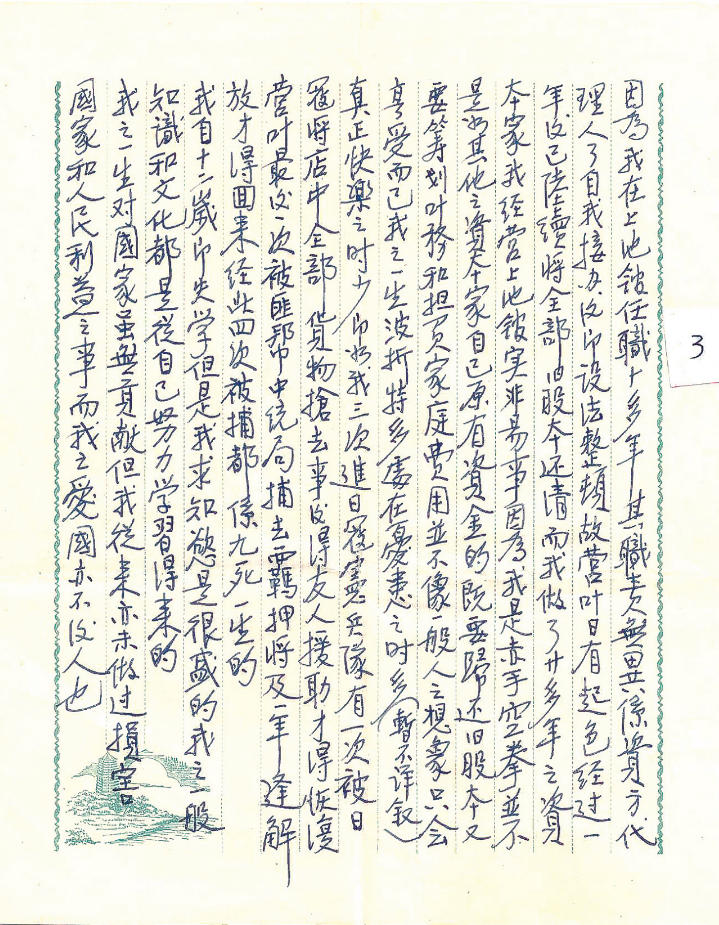 因為我在上地館任職十多年其職責無異係資方代
理人了自我接办后即設法整頓故营叶日有起色经过一
年后已陸續將全部旧股本还清而我做了廿多年之資
本家我经营上地館实非易事因為我是赤手空拳並不
是如其他之資本家自己原有資金的既要歸还旧股本又
要筹划叶務和担负家庭費用並不像一般人之想象只会
享受而已我之一生波折特多處在憂患之时多（暫不详叙）
真正快樂之时少即如我三次進日寇憲兵隊有一次被日
寇將店中全部貨物搶去事后得友人援助才得恢復
营叶最后一次被匪幫中統局捕去羈押將及一年逢解
放才得回来经此四次被捕都係九死一生的
我自十二歲即失学但是我求知慾是很盛的我之一般
知識和文化都是從自己努力学習得来的
我之一生对國家虽無貢献但我從来亦未做过損害
國家和人民利益之事而我之愛國亦不后人也
3